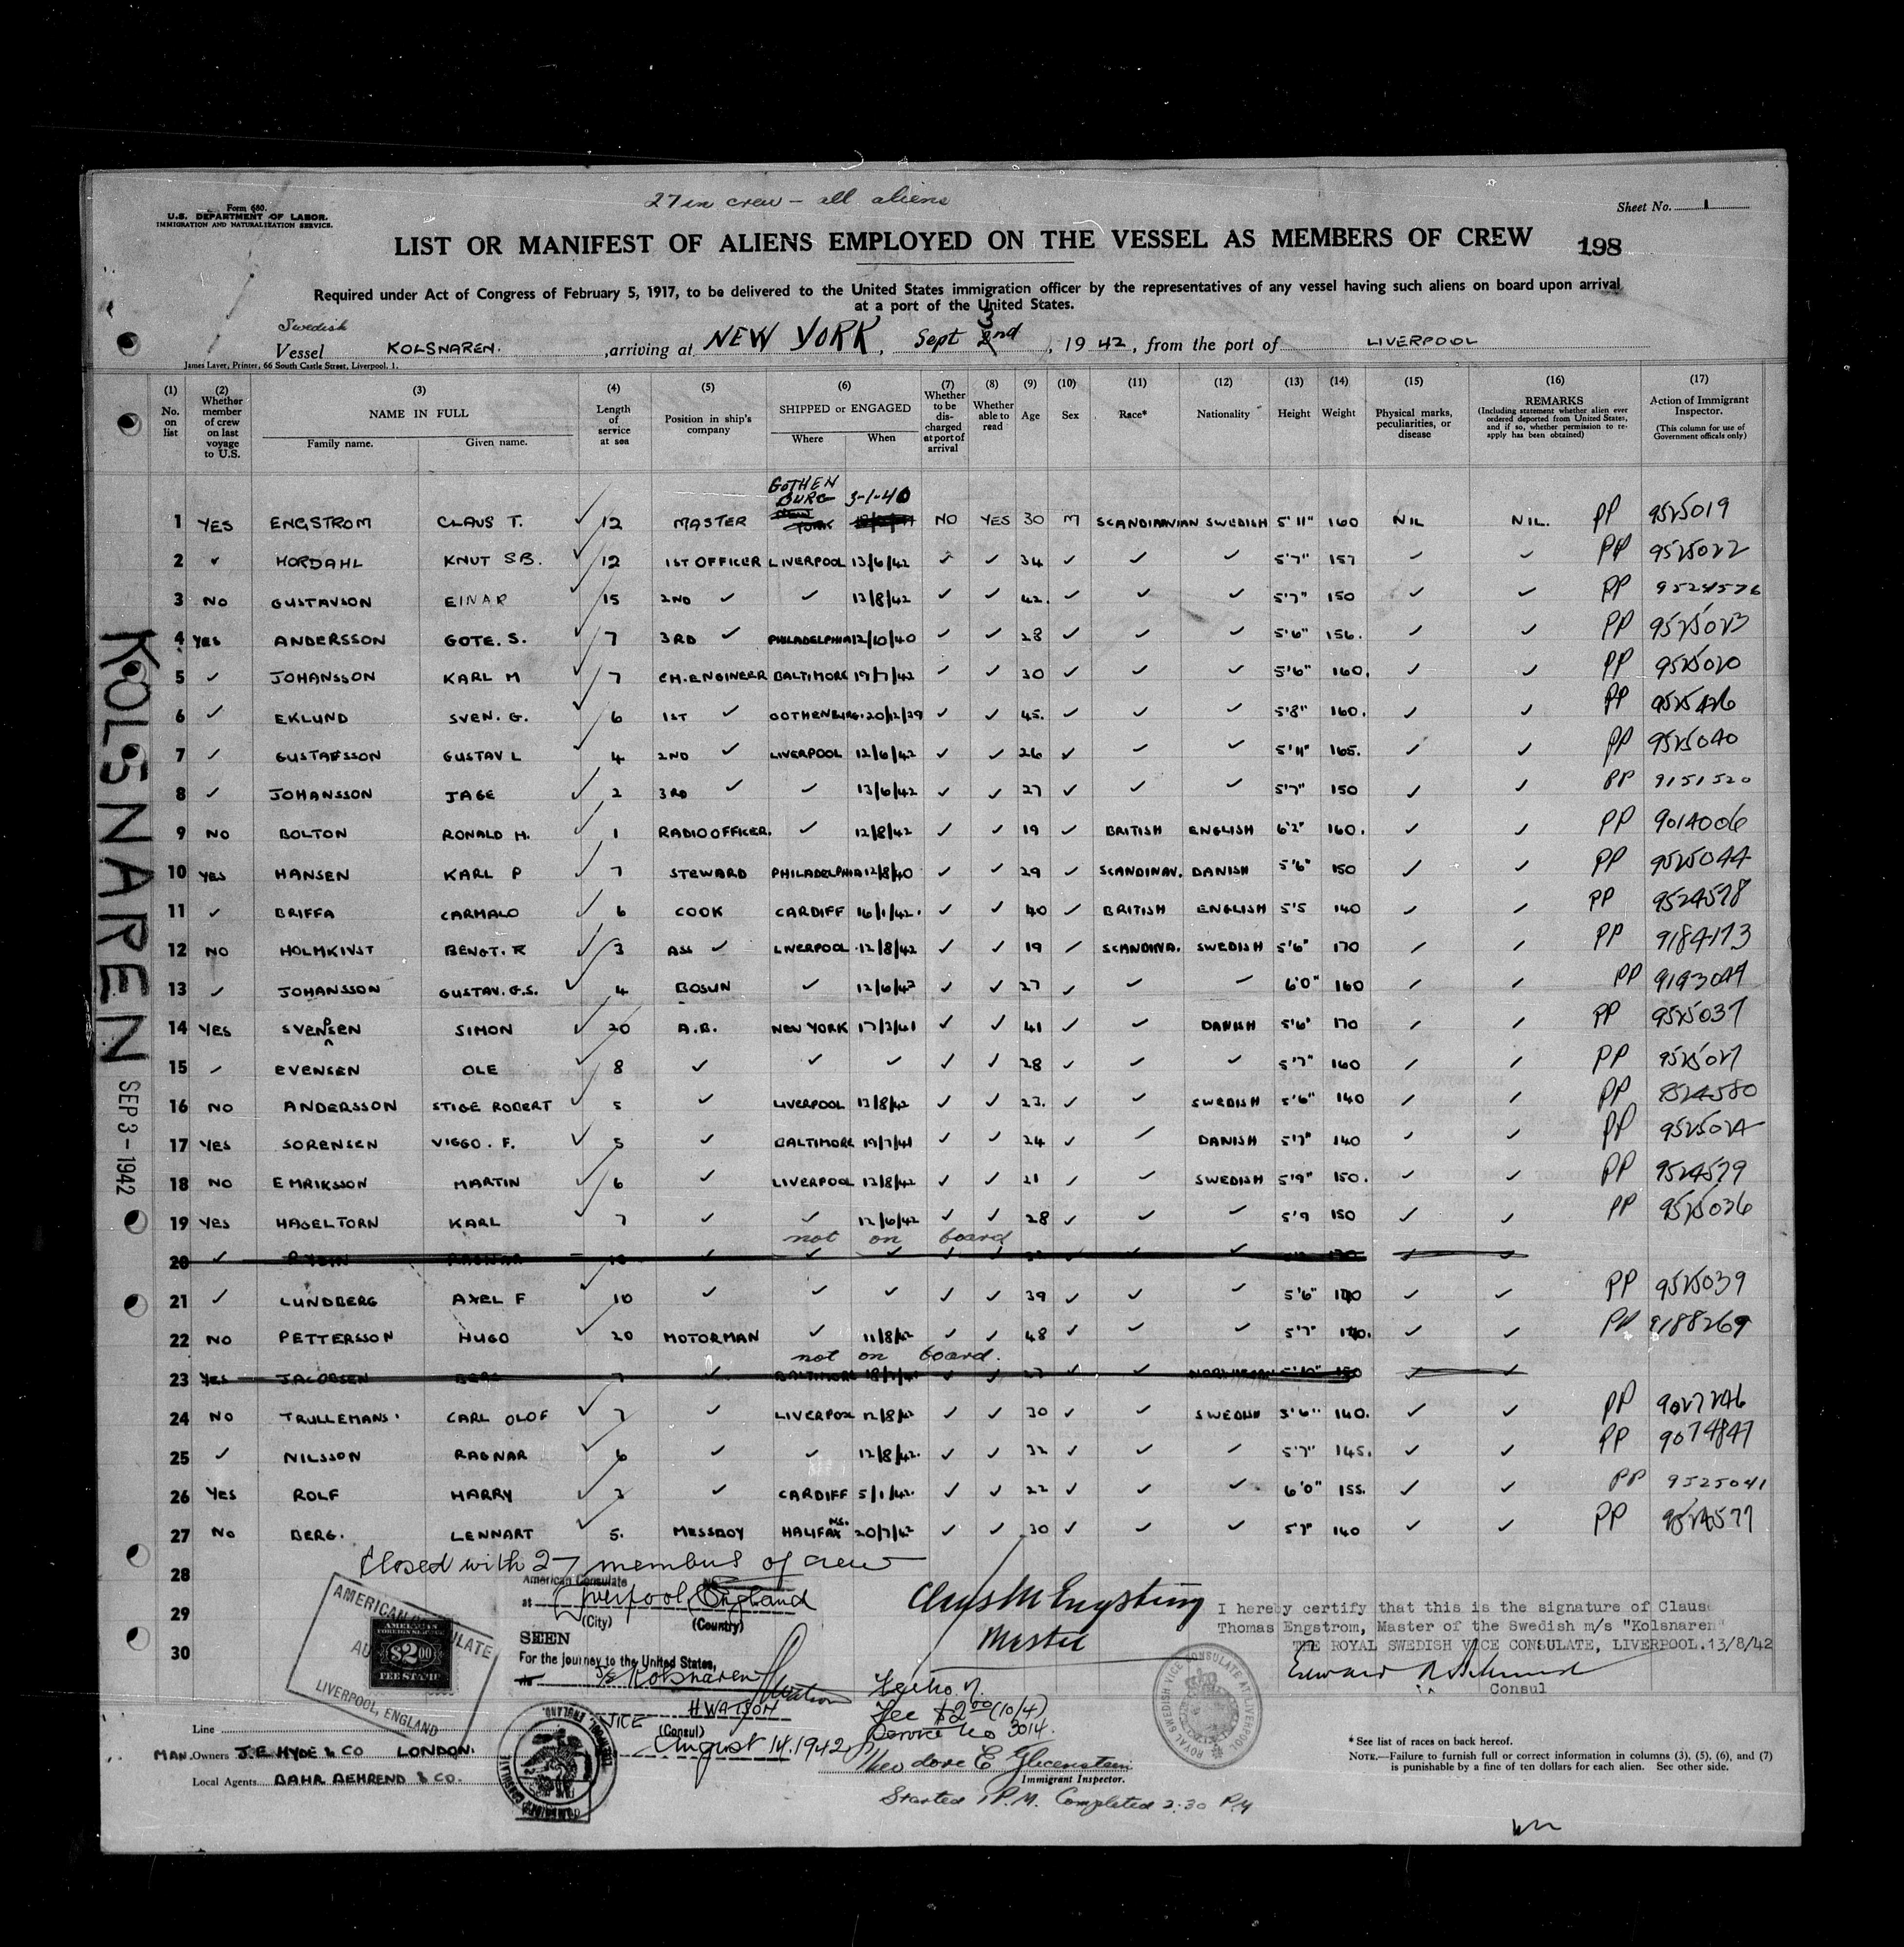 27 in crew – all aliens
Form 680.
U.S. DEPARTMENT OF LABOR.
IMMIGRATION AND NATURALIZATION SERVICE.
Sheet No. 1
LIST OR MANIFEST OF ALIENS EMPLOYED ON THE VESSEL AS MEMBERS OF CREW 198
Required under Act of Congress of February 5, 1917, to be delivered to the United States immigration officer by the representatives of any vessel having such aliens on board upon arrival
at a port of the United States.
Swedish
Vessel KOLSNAREN. , arriving at NEW YORK, Sept 3nd, 1942, from the port of LIVERPOOL
James Laver, Printer, 66 South Castle Street, Liverpool, 1.
(1) No. on list
(2) Whether member of crew on last voyage to U.S.
(3) NAME IN FULL Family name. Given name.
(4) Length of service at sea
(5) Position in ship's company
(6) SHIPPED or ENGAGED Where When
(7) Whether to be discharged at port of arrival
(8) Whether able to read
(9) Age
(10) Sex
(11) Race*
(12) Nationality
(13) Height
(14) Weight
(15) Physical marks, peculiarities, or disease
(16) REMARKS (Including statement whether alien ever ordered deported from United States, and if so, whether permission to re-apply has been obtained)
(17) Action of Immigrant Inspector. (This column for use of Government officials only)
GOTHENBURG 3-1-40
1 YES ENGSTROM CLAUS T. ✓ 12 MASTER NO YES 30 M SCANDINAVIAN SWEDISH 5'11" 160 NIL NIL. PP 9525019
2 ✓ HORDAHL KNUT SB. ✓ 12 1ST OFFICER LIVERPOOL 13/6/42 ✓ ✓ 34 ✓ ✓ ✓ 5'7" 157 ✓ ✓ PP 9525022
3 NO GUSTAVSON EINAR ✓ 15 2ND ✓ ✓ 12/8/42 ✓ ✓ 42. ✓ ✓ ✓ 5'7" 150 ✓ ✓ PP 9524576
4 YES ANDERSSON GOTE. S. ✓ 7 3RD ✓ PHILADELPHIA 12/10/40 ✓ ✓ 28 ✓ ✓ ✓ 5'6" 156. ✓ ✓ PP 9525023
5 ✓ JOHANSSON KARL M ✓ 7 CH. ENGINEER BALTIMORE 19/7/42 ✓ ✓ 30 ✓ ✓ ✓ 5'6" 160. ✓ ✓ PP 9525020
6 ✓ EKLUND SVEN. G. ✓ 6 1ST ✓ GOTHENBURG. 20/12/39 ✓ ✓ 45. ✓ ✓ ✓ 5'8" 160. ✓ ✓ PP
7 ✓ GUSTAFSSON GUSTAV L ✓ 4 2ND ✓ LIVERPOOL 12/6/42 ✓ ✓ 26 ✓ ✓ ✓ 5'11" 165. ✓ ✓ PP 9525040
8 ✓ JOHANSSON JAGE ✓ 2 3RD ✓ ✓ 13/6/42 ✓ ✓ 27 ✓ ✓ ✓ 5'7" 150 ✓ ✓ PP 9151520
9 NO BOLTON RONALD H. ✓ 1 RADIO OFFICER. ✓ 12/8/42 ✓ ✓ 19 ✓ BRITISH ENGLISH 6'2" 160. ✓ ✓ PP 9014006
10 YES HANSEN KARL P ✓ 7 STEWARD PHILADELPHIA 12/8/40 ✓ ✓ 29 ✓ SCANDINAV. DANISH 5'6" 150 ✓ ✓ PP 9525044
11 ✓ BRIFFA CARMALO ✓ 6 COOK CARDIFF 16/1/42. ✓ ✓ 40 ✓ BRITISH ENGLISH 5'5 140 ✓ ✓ PP 9524578
12 NO HOLMKIVST BENGT. R ✓ 3 ASS ✓ LIVERPOOL 12/8/42 ✓ ✓ 19 ✓ SCANDINA. SWEDISH 5'6" 170 ✓ ✓ PP 9184173
13 ✓ JOHANSSON GUSTAV. G.S. ✓ 4 BOSUN ✓ 12/6/42 ✓ ✓ 27 ✓ ✓ ✓ 6'0" 160 ✓ ✓ PP 9193044
14 YES SVENSEN SIMON ✓ 20 A.B. NEW YORK 17/2/41 ✓ ✓ 41 ✓ ✓ DANISH 5'6" 170 ✓ ✓ PP 9525037
15 ✓ EVENSEN OLE ✓ 8 ✓ ✓ ✓ ✓ ✓ 28 ✓ ✓ ✓ 5'7" 160 ✓ ✓ PP 9525027
16 NO ANDERSSON STIGE ROBERT ✓ 5 ✓ LIVERPOOL 12/8/42 ✓ ✓ 23. ✓ ✓ SWEDISH 5'6" 140 ✓ ✓ PP 9524580
17 YES SORENSEN VIGGO. F. ✓ 5 ✓ BALTIMORE 19/7/41 ✓ ✓ 24 ✓ ✓ DANISH 5'7" 140 ✓ ✓ PP 9525024
18 NO EMRIKSSON MARTIN ✓ 6 ✓ LIVERPOOL 12/8/42 ✓ ✓ 21 ✓ ✓ SWEDISH 5'9" 150. ✓ ✓ PP 9524579
19 YES HAGELTORN KARL ✓ 7 ✓ ✓ 12/6/42 ✓ ✓ 28 ✓ ✓ ✓ 5'9 150 ✓ ✓ PP 9525036
not on board
20 ✓ RAGNAR
21 ✓ LUNDBERG AXEL F ✓ 10 ✓ ✓ ✓ ✓ ✓ 39 ✓ ✓ ✓ 5'6" ✓ ✓ PP 9525039
22 NO PETTERSSON HUGO ✓ 20 MOTORMAN ✓ 11/8/42 ✓ ✓ 48 ✓ ✓ ✓ 5'7" 170. ✓ ✓ PP 9188269
not on board.
23 YES JACOBSEN 7 ✓ BALTIMORE ✓ ✓ 27 ✓ ✓ NORWEGIAN 5'10" 150 ✓ ✓
24 NO TRULLEMANS CARL OLOF ✓ 7 ✓ LIVERPOOL 12/8/42 ✓ ✓ 30 ✓ ✓ SWEDISH 5'6" 140. ✓ ✓ PP 9027246
25 ✓ NILSSON RAGNAR ✓ 6 ✓ ✓ 12/8/42. ✓ ✓ 32 ✓ ✓ ✓ 5'7" 145. ✓ ✓ PP 9074847
26 YES ROLF HARRY ✓ 2 ✓ CARDIFF 5/1/42. ✓ ✓ 22 ✓ ✓ ✓ 6'0" 155. ✓ ✓ PP 9525041
27 NO BERG. LENNART ✓ 5. MESSBOY HALIFAX NS. 20/7/42 ✓ ✓ 30 ✓ ✓ ✓ 5'7" 140 ✓ ✓ PP 9524577
28 Closed with 27 members of crew
29
30
KOLSNAREN
SEP 3 - 1942
AMERICAN CONSULATE
LIVERPOOL, ENGLAND
AMERICAN FOREIGN SERVICE $2.00 FEE STAMP
American Consulate
at Liverpool, England
(City) (Country)
SEEN
For the journey to the United States,
S/S Kolsnaren
H WATSON
VICE (Consul)
August 14. 1942
Master
I hereby certify that this is the signature of Claus
Thomas Engstrom, Master of the Swedish m/s "Kolsnaren"
THE ROYAL SWEDISH VICE CONSULATE, LIVERPOOL. 13/8/42
Consul
ROYAL SWEDISH VICE CONSULATE AT LIVERPOOL
Fee $2.00 (10/4)
Service No 3014.
Theodore E Glicenstein
Immigrant Inspector.
Started 1 P.M. Completed 2:30 PM
Line
MAN. Owners J.E. HYDE & CO LONDON.
Local Agents BAHR BEHREND & CO.
*See list of races on back hereof.
NOTE.—Failure to furnish full or correct information in columns (3), (5), (6), and (7)
is punishable by a fine of ten dollars for each alien. See other side.